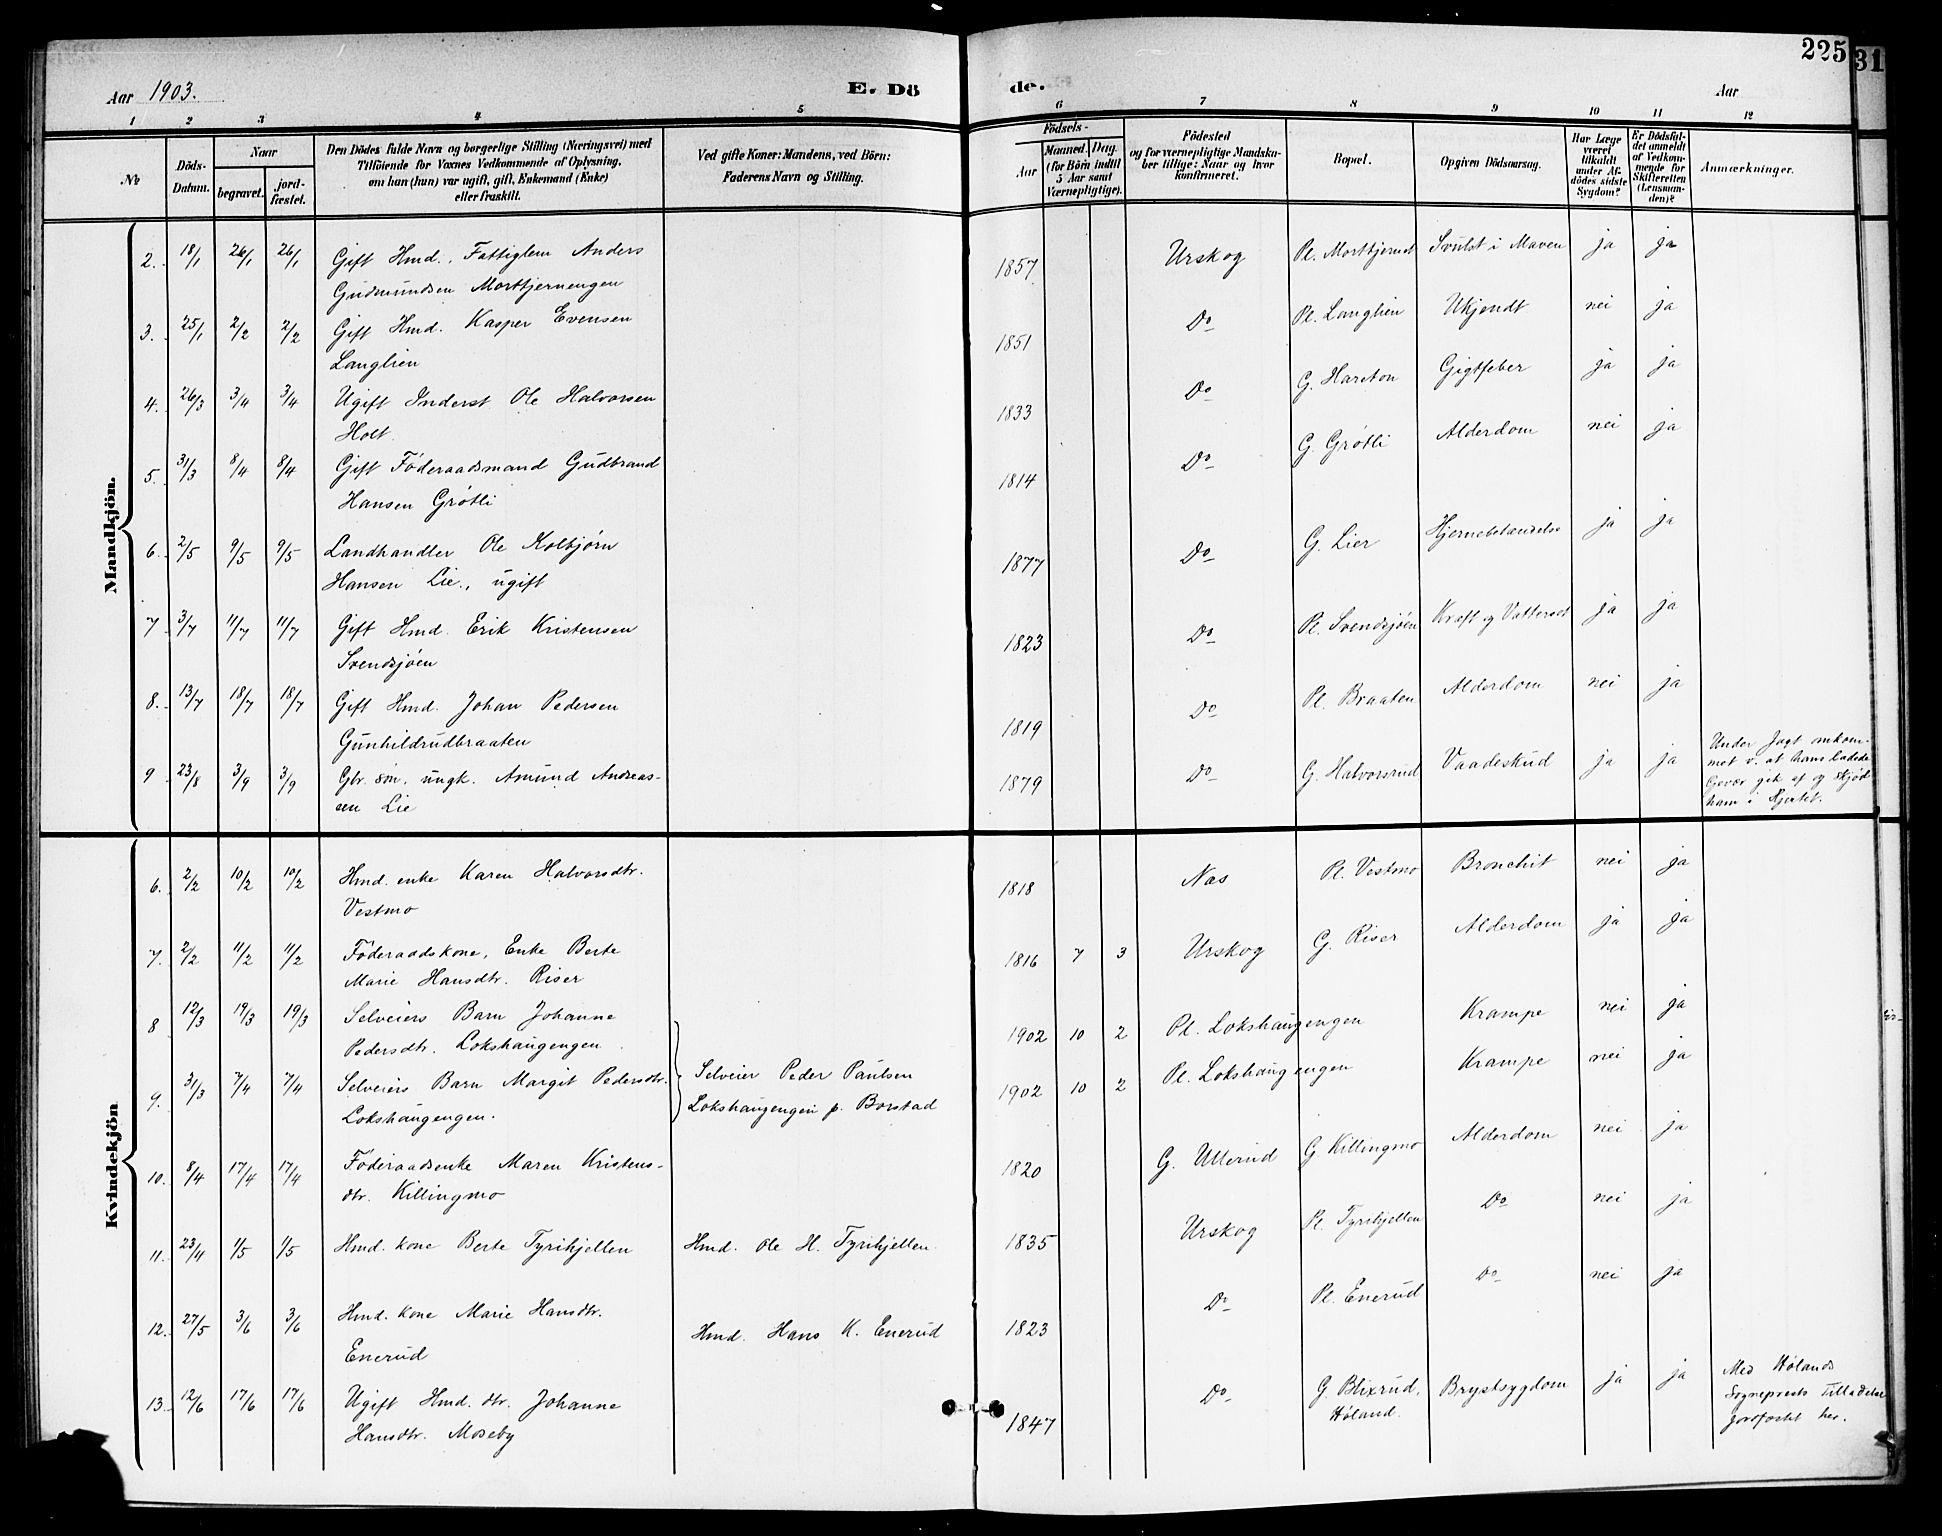 225
31
Aar 1903. E. Dö de. Aar
1 2 3 4 5 6 7 8 9 10 11 12
№ Döds-Datum. Naar begravet. jord-fæstet. Den Dödes fulde Navn og borgerlige Stilling (Næringsvei) med Tilföiende for Voxnes Vedkommende af Oplysning, om han (hun) var ugift, gift, Enkemand (Enke) eller fraskilt. Ved gifte Koner: Mandens, ved Börn: Faderens Navn og Stilling. Födsels- Aar Maaned. Dag. (for Börn indtil 5 Aar samt Værnepligtige). Födested og for værnepligtige Mandskaber tillige: Naar og hvor konfirmeret. Bopæl. Opgiven Dödsaarsag. Har Læge været tilkaldt under Afdödes sidste Sygdom? Er Dödsfaldet anmeldt af Vedkommende for Skifteretten (Lensmanden)? Anmærkninger.
Mandkjön.
2. 18/1 26/1 26/1 Gift Hmd., Fattiglem Anders 1857 Urskog Pl. Morttjernet Svulst i Maven ja ja
Gudmundsen Morttjernengen
3. 25/1 2/2 2/2 Gift Hmd. Kasper Evensen 1851 Do Pl. Langlien Ukjendt nei ja
Langlien
4. 26/3 3/4 3/4 Ugift Inderst Ole Halvorsen 1833 Do G. Harston Gigtfeber ja ja
Holt.
5. 31/3 8/4 8/4 Gift Föderaadsmand Gudbrand 1814 Do G. Grötli Alderdom nei ja
Hansen Grötli
6. 2/5 9/5 9/5 Landhandler Ole Kolbjörn 1877 Do G. Lier Hjernebetændelse ja ja
Hansen Lie., ugift
7 3/7 11/7 11/7 Gift Hmd. Erik Kristensen 1823 Do Pl. Svendsjöen Kræft og Vattersot ja ja
Svendsjöen
8. 13/7 18/7 18/7 Gift Hmd. Johan Pedersen 1819 Do Pl. Braaten Alderdom nei ja
Gunhildrudbraaten
9 23/8 3/9 3/9 Gbr. sön. ungk. Amund Andreas- 1879 Do G. Halvorsrud Vaadeskud ja ja Under Jagt omkom-
sen Lie met v. at hans ladede
Gevær gik af og skjöd
ham i Hjertet.
Kvindekjön
6. 2/2 10/2 10/2 Hmd. enke Karen Halvorsdtr. 1818 Nas Pl. Vestmo Bronchit nei ja
Vestmo
7. 2/2 11/2 11/2 Föderaadskone, Enke Berte 1816 7 3 Urskog G. Riser Alderdom ja ja
Marie Hansdtr. Riser
8 12/3 19/3 19/3 Selveiers Barn Johanne 1902 10 2 Pl. Lokshaugengen Krampe nei ja
Pedersdtr. Lokshaugengen
9. 31/3 7/4 7/4 Selveiers Barn Margit Pedersdtr. Selveier Peder Paulsen 1902 10 2 Pl. Lokshaugengen Krampe nei ja
Lokshaugengen. Lokshaugengen p. Borstad
10. 8/4 17/4 17/4 Föderaadsenke Maren Kristens- 1820 G. Ullerud G. Killingmo Alderdom nei ja
dtr. Killingmo
11. 23/4 1/5 1/5 Hmd. kone Berte Tyrihjellen Hmd. Ole H. Tyrihjellen 1835 Urskog Pl. Tyrihjellen Do nei ja
12. 27/5 3/6 3/6 Hmd. kone Marie Hansdtr. Hmd. Hans K. Enerud 1823 Do Pl. Enerud Do nei ja
Enerud
13. 12/6 17/6 17/6 Ugift Hmd. dtr. Johanne 1847 Do G. Blixrud, Brystsygdom ja ja Med Hölands
Hansdtr. Moseby Höland. Sogneprests Tilladelse
jordfæstet her.